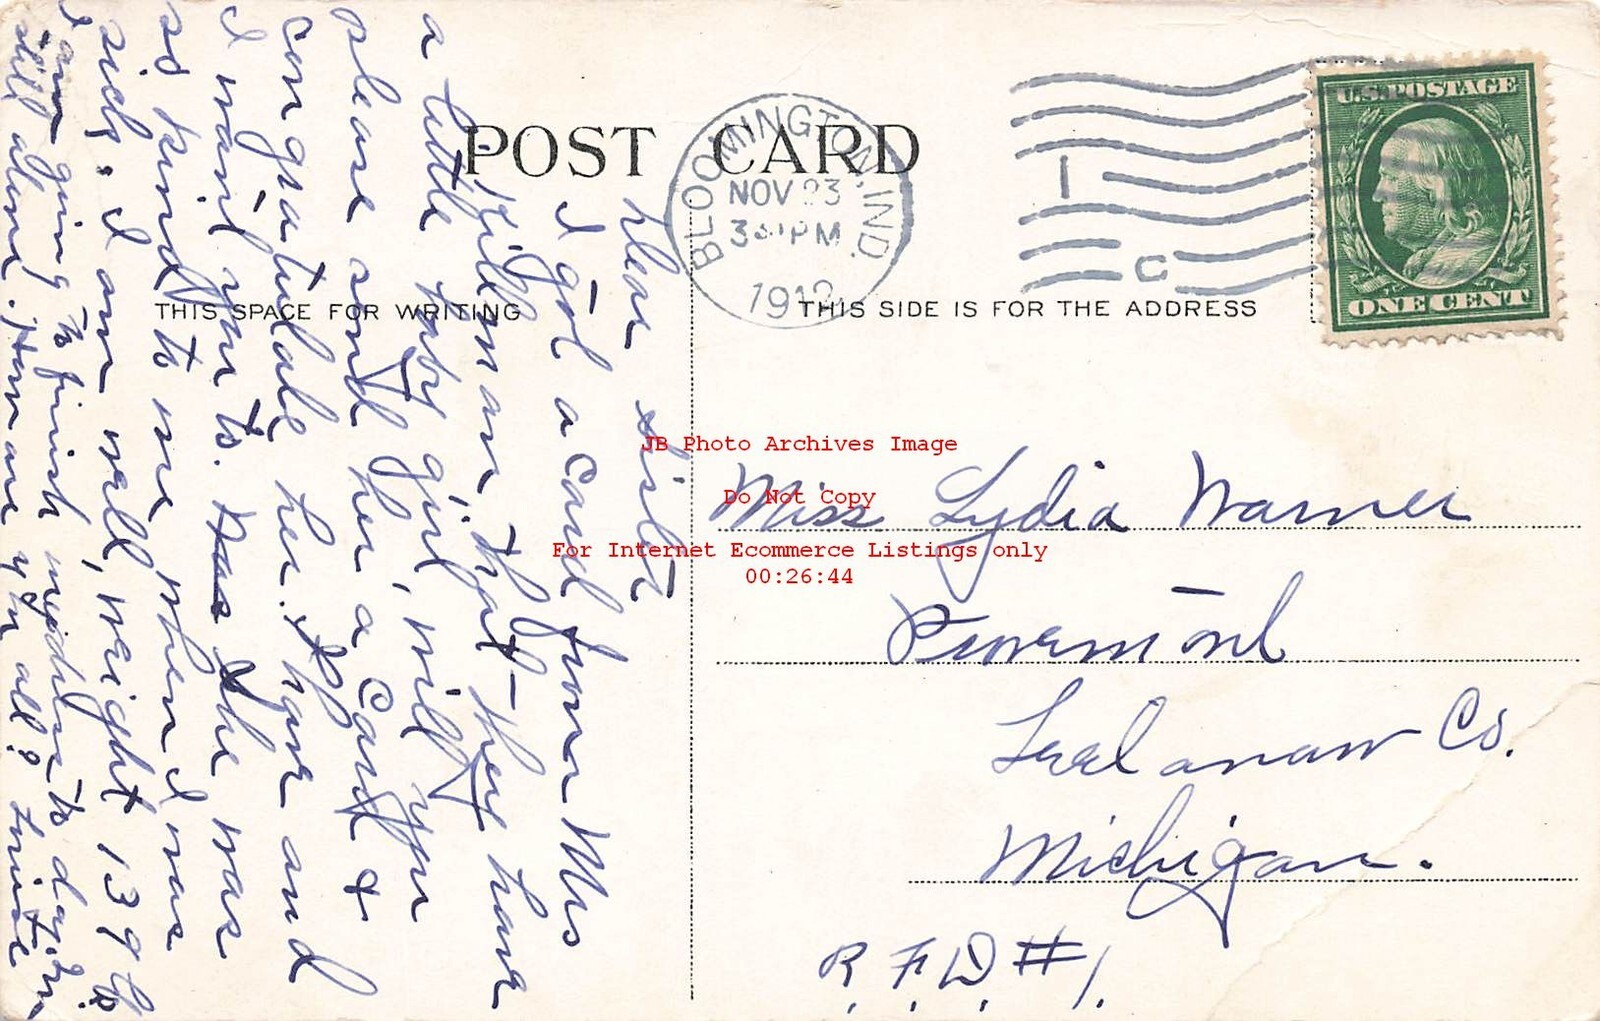 POST CARD
THIS SPACE FOR WRITING
THIS SIDE IS FOR THE ADDRESS
BLOOMINGTON, IND.
NOV 23
3 PM
1912
1 C
U.S. POSTAGE
ONE CENT
Dear sister
I got a card from Mrs
that they have
a little baby girl, will you
please send her a card &
congratulate her & have and
I want you to. she was
so kind to me when I was
sick. I am well, weight 139 lb
I am going to finish to day. I'm
still alone. How are you all? Write
Miss Lydia Warner
Leelanaw Co.
Michigan.
R.F.D. #1.
JB Photo Archives Image
Do Not Copy
For Internet Ecommerce Listings only
00:26:44